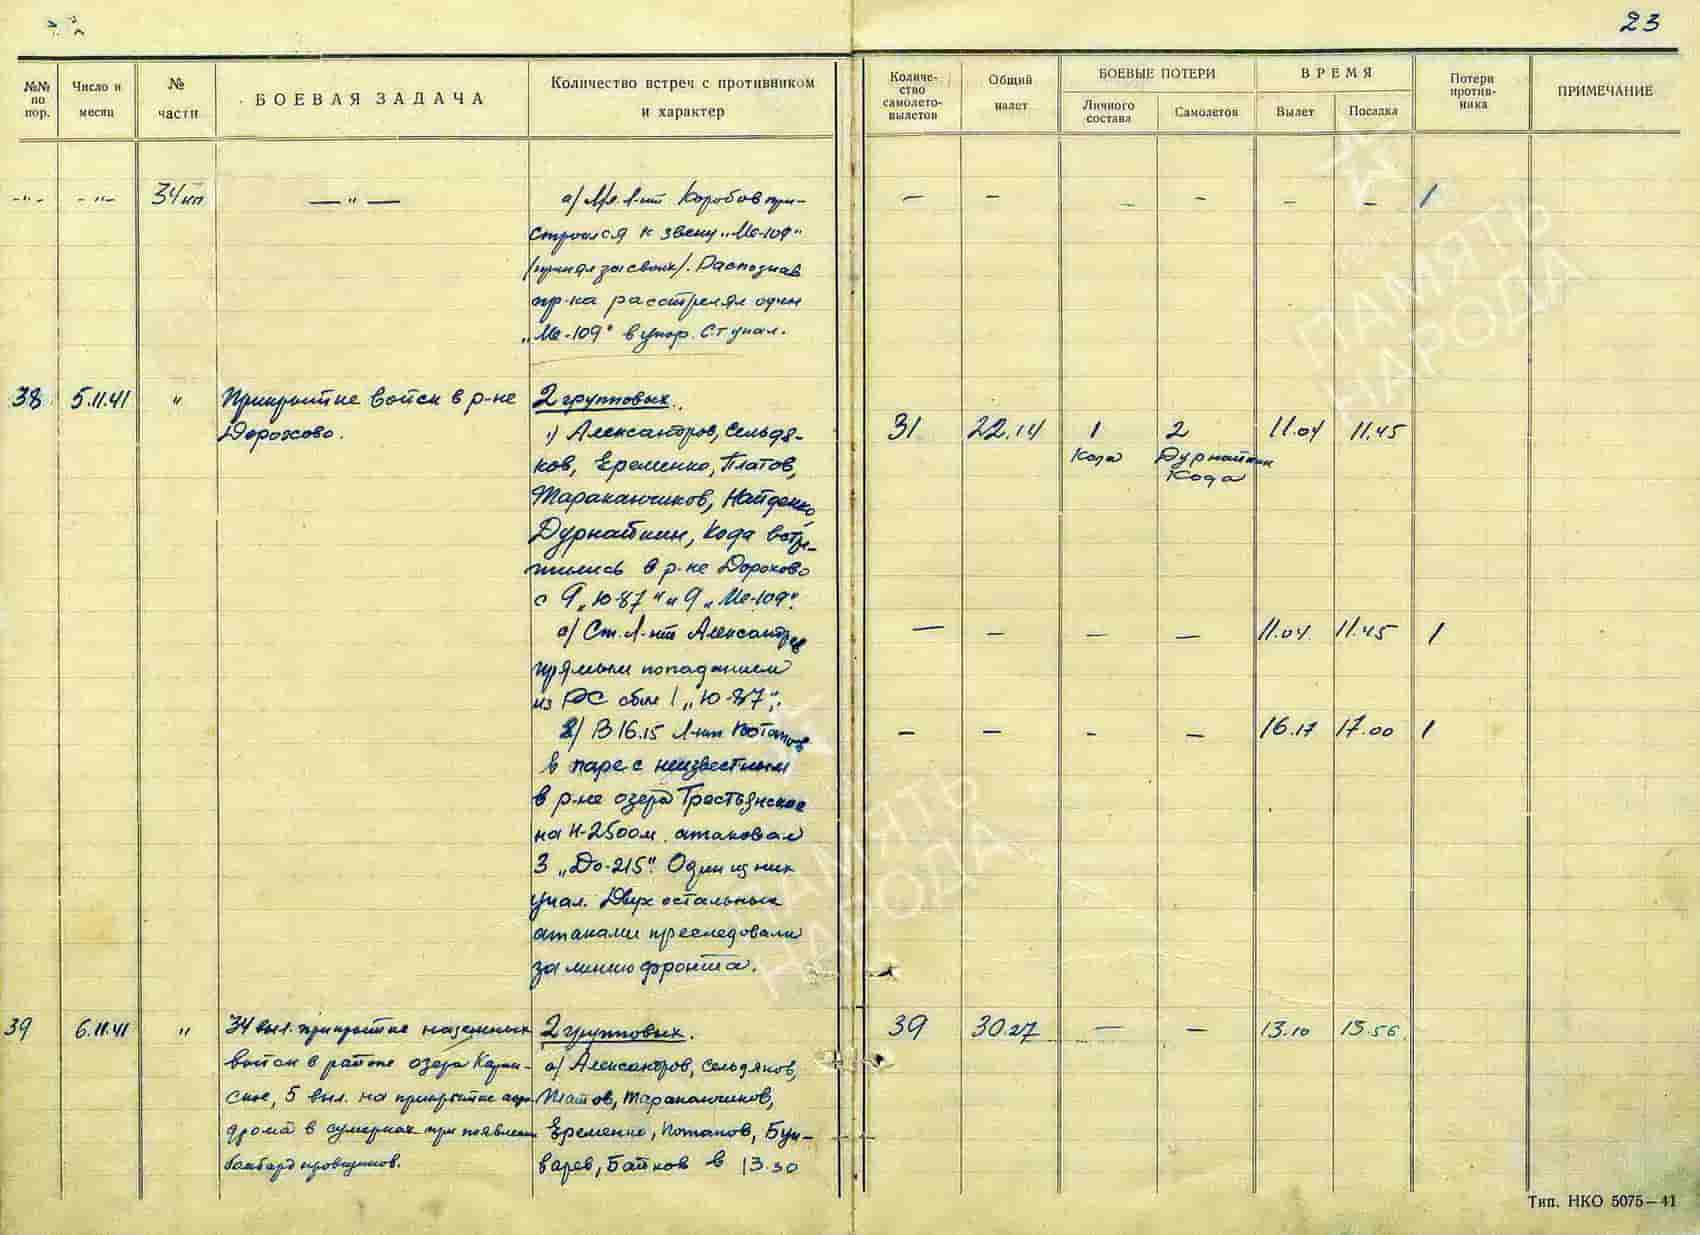 23
№№ по пор.
Число и месяц
№ части
БОЕВАЯ ЗАДАЧА
Количество встреч с противником и характер
Количество самолето-вылетов
Общий налет
БОЕВЫЕ ПОТЕРИ
Личного состава
Самолетов
ВРЕМЯ
Вылет
Посадка
Потери против-ника
ПРИМЕЧАНИЕ
-"- -"- 34 ип —"— а/ Мл. л-нт Коробов при- — — — — — — 1
строился к звену „Ме-109"
/приняв за своих/. Распознав
пр-ка расстрелял один
„Ме-109" в упор. С-т упал.
38 5.11.41 " Прикрытие войск в р-не 2 групповых.
Дорохово. 1) Александров, Сельдя- 31 22.14 1 2 11.04 11.45
ков, Еременко, Платов, Кода Дурнайкин
Тараканчиков, Найденко, Кода
Дурнайкин, Кода встре-
тились в р-не Дорохово
с 9 „Ю-87" и 9 „Ме-109".
а/ Ст. л-нт Александров — — — — 11.04 11.45 1
прямым попаданием
из РС сбил 1 „Ю-87".
2) В 16.15 л-нт Потапов — — — — 16.17 17.00 1
в паре с неизвестным
в р-не озера Тростянское
на Н-2500м атаковал
3 „До-215". Один из них
упал. Двух остальных
атаками преследовали
за линию фронта.
39 6.11.41 " 34 выл. прикрытие наземных 2 групповых. 39 30.27 — — 13.10 13.56
войск в районе озера Карин- а/ Александров, Сельдяков,
ское, 5 выл. на прикрытие аэро- Платов, Тараканчиков,
дрома в сумерках при появлении Еременко, Потапов, Бух-
бомбардировщиков. варев, Байков в 13.30
Тип. НКО 5075—41
ПАМЯТЬ
НАРОДА
ПАМЯТЬ
НАРОДА